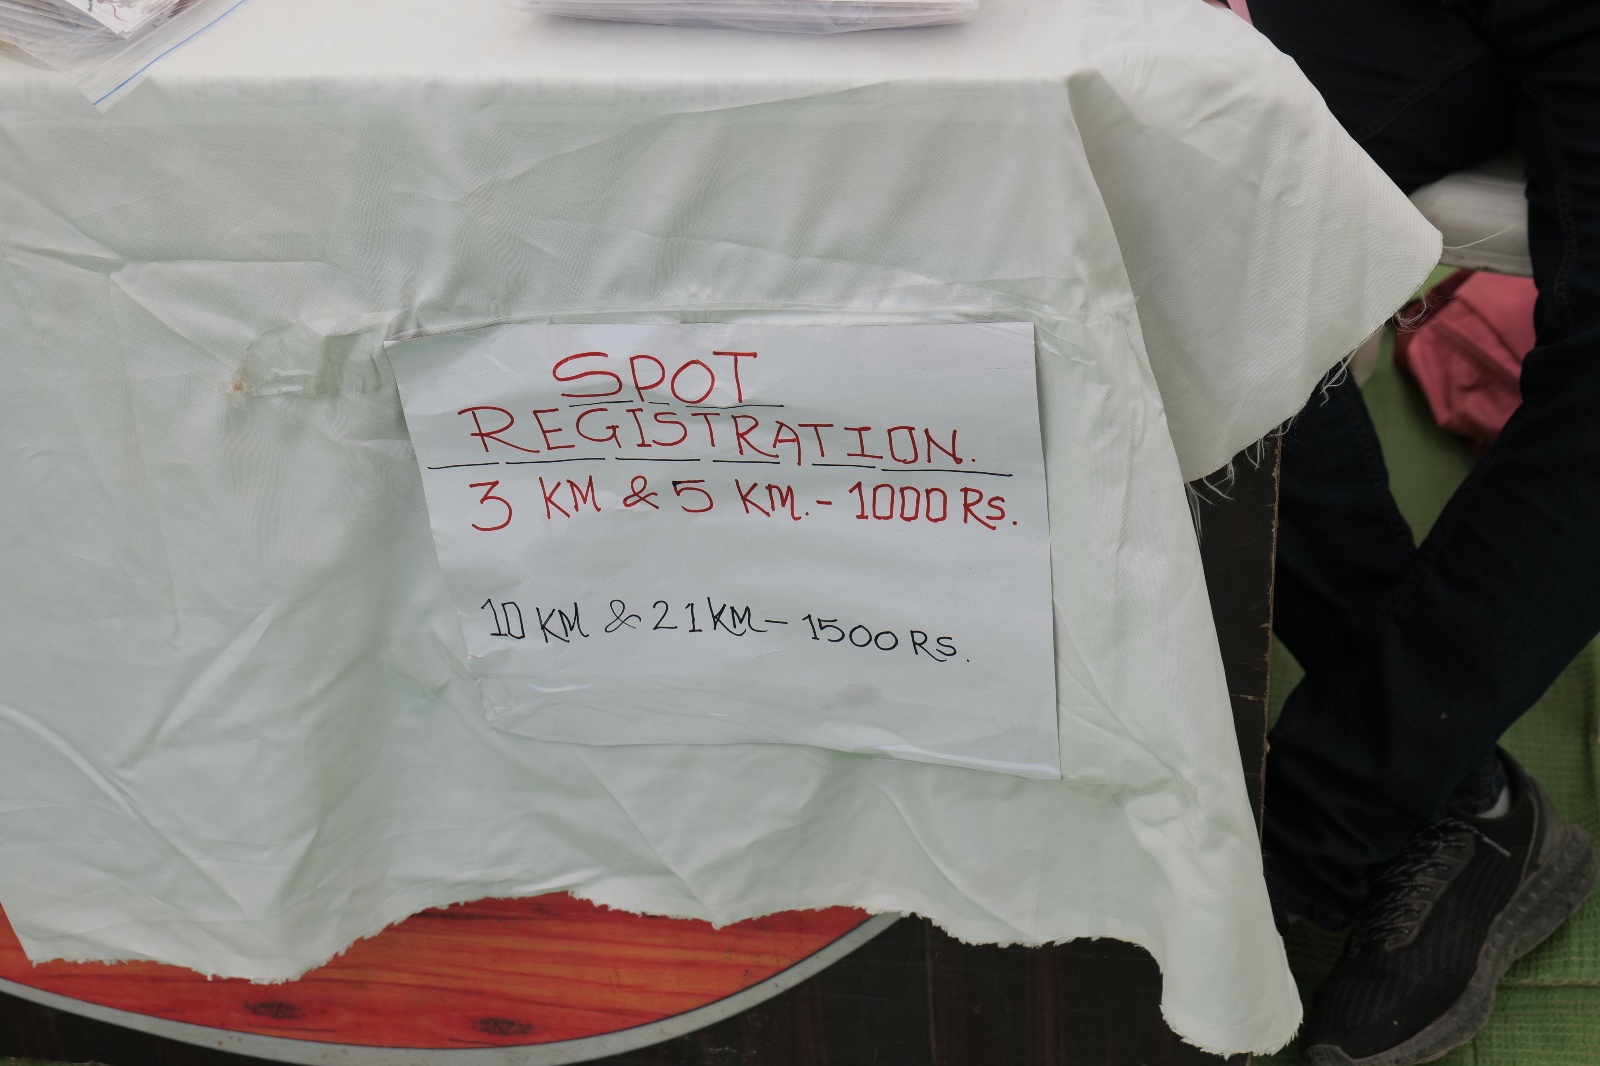 SPOT
REGISTRATION.
3 KM & 5 KM.- 1000 Rs.
10 KM & 21 KM - 1500 RS.